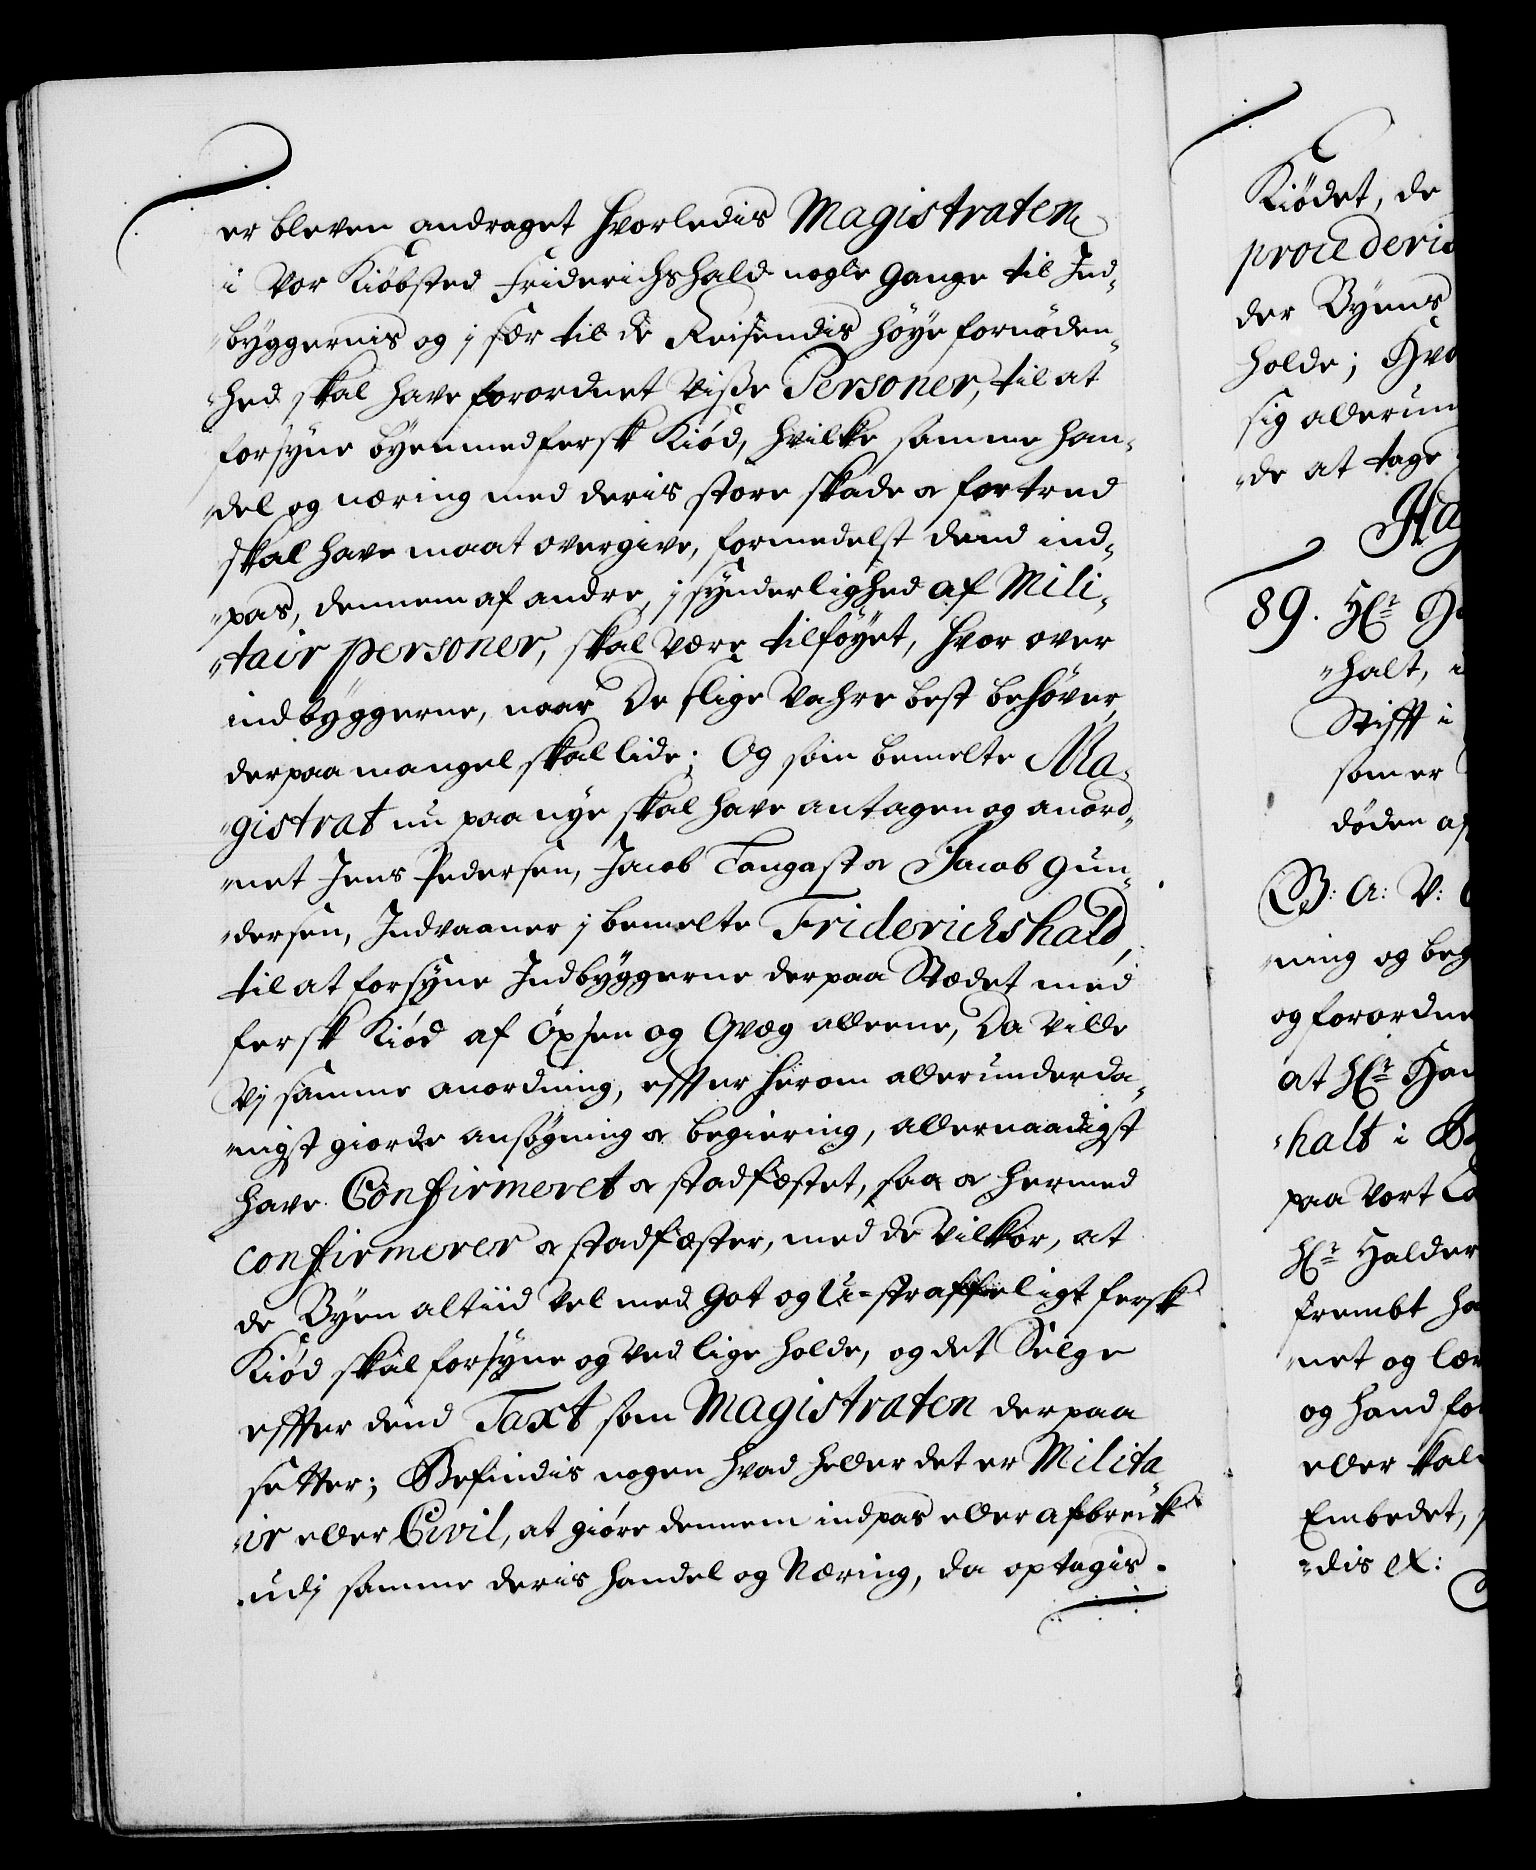 er bleven andraget hvorledis Magistraten
i Vor Kiøbsted Friderichshald nogle gange til Ind-
byggernis og i sær til de Reisendis høye fornøden-
hed skal have forordnet visse Personer, til at
forsyne byen med fersk Kiød, hvilke samme han-
del og næring med deris store skade & fortred
skal have maat overgive, formedelst dend ind-
pas, dennem af andre, i synderlighed af Mili-
tair personer, skal være tilføyet, hvor over
indbyggerne, naar De slige vahre best behøver,
derpaa mangel skal lide; Og som bemelte Ma-
gistrat nu paa nye skal have antagen og anord-
net Jens Pedersen, Jacob Tangast & Jacob Gun-
dersen, Indvaaner i bemelte Friderichshald,
til at forsyne Indbyggerne derpaa Stædet med
fersk Kiød af Øxsen og Qvæg alleene, Da ville
Vj samme anordning, effter herom allerunderda-
nigst giorde ansøgning & begiering, allernaadigst
have Confirmeret & stadfæstet, saa & hermed
confirmerer & stadfæster, med de Vilkor, at
de Byen altiid vel med got og U-straffeligt fersk
Kiød skal forsyne og ved lige holde, og det Selge
effter dend Taxt som Magistraten derpaa
setter; Befindis nogen hvad heller det er Milita
ir eller Civil, at giøre dennem indpas eller afbreck
udj samme deris handel og Næring, da optagis
Kiødet, de
procederis
der Byens
holde; Hvo
sig allerun
de at tage
89. Hr.
halt, i
Stifft i
som er
døden af
G: A: V:
ning og beg
og forordne
at Hr. Han
halt i
paa Vort
Hr. Halder
frembt ha
net og lær
og hand for
eller kal
Embedet,
dis &: